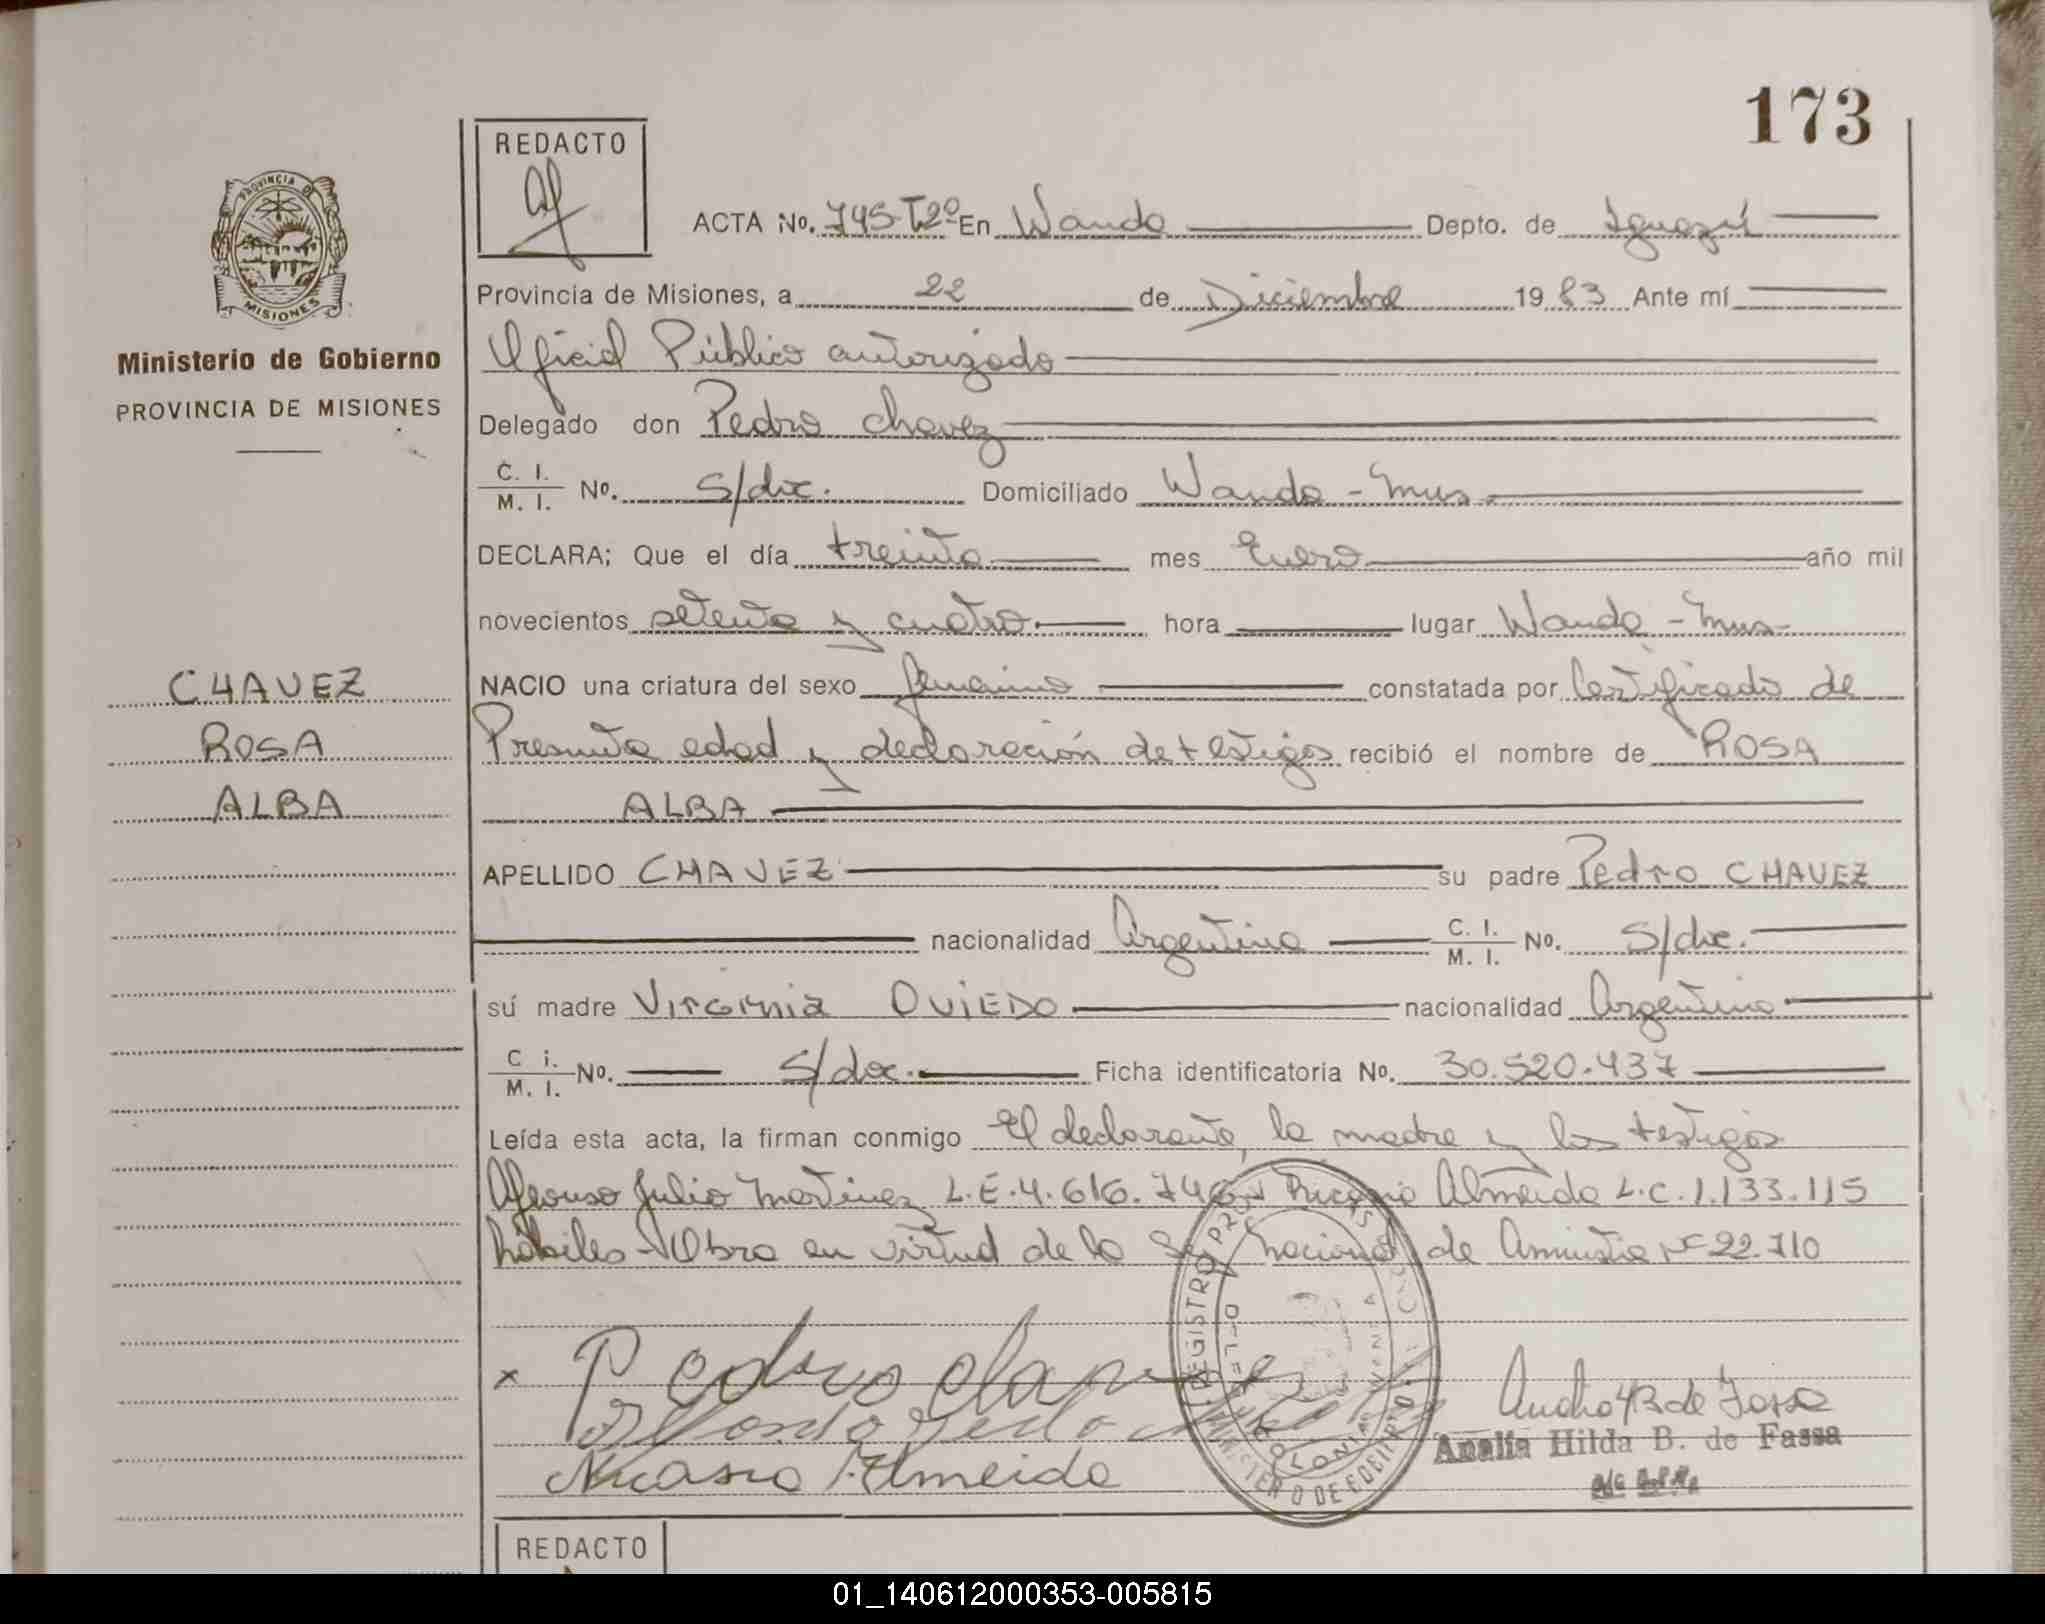 173
REDACTO
PROVINCIA DE
MISIONES
ACTA No. 745-T2º En Wanda Depto. de Iguazú
Provincia de Misiones, a 22 de Diciembre 1983 Ante mí
Ministerio de Gobierno
Oficial Público autorizado
PROVINCIA DE MISIONES
Delegado don Pedro Chavez
C. I.
M. I. No. s/doc. Domiciliado Wanda - Mnes
DECLARA; Que el día treinta mes Enero año mil
novecientos setenta y cuatro hora lugar Wanda - Mnes
CHAVEZ
NACIO una criatura del sexo femenino constatada por Certificado de
ROSA
Presunta edad y declaración de testigos recibió el nombre de ROSA
ALBA
ALBA
APELLIDO CHAVEZ su padre Pedro CHAVEZ
nacionalidad Argentina C. I. M. I. No. s/doc.
sú madre Virginia OVIEDO nacionalidad Argentina
C i. M. I. No. s/doc. Ficha identificatoria No. 30.520.437
Leída esta acta, la firman conmigo El declarante, la madre y los testigos
Julio Martinez L.E.4.616.746 y Almeida L.C.1.133.115
hábiles - Obra en virtud de la nacional de Amnistia Nº 22.710
Pedro
Almeida
Analía Hilda B. de Fassa
REDACTO
01_140612000353-005815